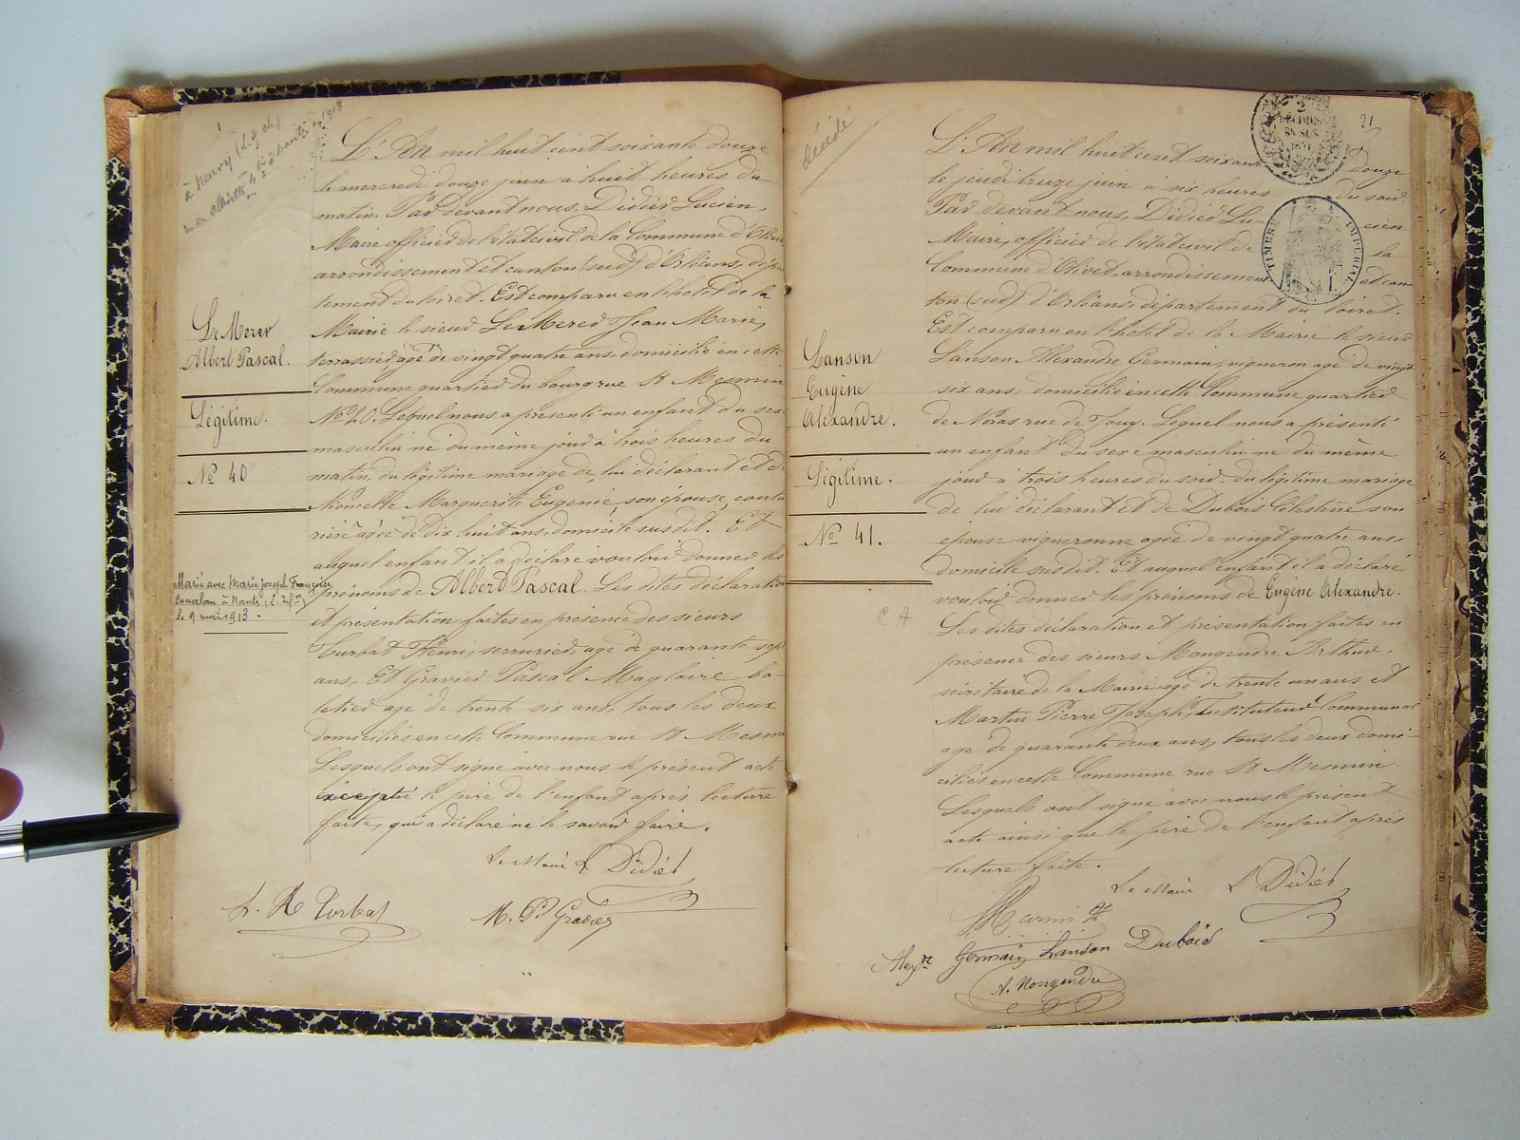 Le Merer
Albert Pascal.
Légitime.
No 40
Marié avec Marie Joseph Françoise
à Nantes
le 9 mai 1913.
L'An mil huit cent soixante douze
le mercredi douze juin à huit heures du
matin. Par devant nous, Didier Lucien,
Maire officier de l'état civil de la Commune d'Olivet
arrondissement et canton (sud) d'Orléans, dépar
tement du loiret. Est comparu en l'hôtel de la
Mairie le sieur Le Merer Jean Marie,
terrassier, âgé de vingt quatre ans, domicilié en cette
Commune quartier du bourg rue St Mesmin
No 20. Lequel nous a présenté un enfant du sexe
masculin né du même jour à trois heures du
matin, du légitime mariage de lui déclarant et de
Marguerite Eugénie, son épouse, coutu
rière âgée de dix huit ans, domicile susdit. Et
auquel enfant il a déclaré vouloir donner les
prénoms de Albert Pascal. Les dites déclaration
et présentation faites en présence des sieurs
Turbat Henri, serrurier, âgé de quarante sept
ans, Et Gravier Pascal Magloire, ba-
telier âgé de trente six ans, tous les deux
domiciliés en cette Commune rue St Mesmin
Lesquels ont signé avec nous le présent acte
excepté le père de l'enfant après lecture
faite, qui a déclaré ne le savoir faire.
Le Maire L Didier
H. Turbat
M. P. Gravier
décédé
21
Lanson
Eugène
Alexandre.
Légitime.
No 41.
C A
TIMBRE IMPERIAL
L'An mil huit cent soixante douze
le jeudi treize juin à six heures du soir
Par devant nous, Didier Lucien
Maire, officier de l'état civil de la
Commune d'Olivet arrondissement et can
ton (sud) d'Orléans, département du loiret.
Est comparu en l'hôtel de la Mairie le sieur
Lanson Alexandre Germain, vigneron âgé de vingt
six ans, domicilié en cette Commune quartier
de Noras rue de Toug. Lequel nous a présenté
un enfant du sexe masculin né du même
jour à trois heures du soir du légitime mariage
de lui déclarant et de Dubois Célestine son
épouse vigneronne âgée de vingt quatre ans
domicile susdit. Et auquel enfant il a déclaré
vouloir donner les prénoms de Eugène Alexandre.
Les dites déclaration et présentation faites en
présence des sieurs Mongendre Arthur,
sécrétaire de la Mairie âgé de trente un ans et
Martin Pierre Joseph, Instituteur Communal
âgé de quarante deux ans, tous les deux domi-
ciliés en cette Commune rue St Mesmin
Lesquels ont signé avec nous le présent
acte ainsi que le père de l'enfant après
lecture faite.
Le Maire L Didier
Alexre Germain Lanson Dubois
A. Mongendre